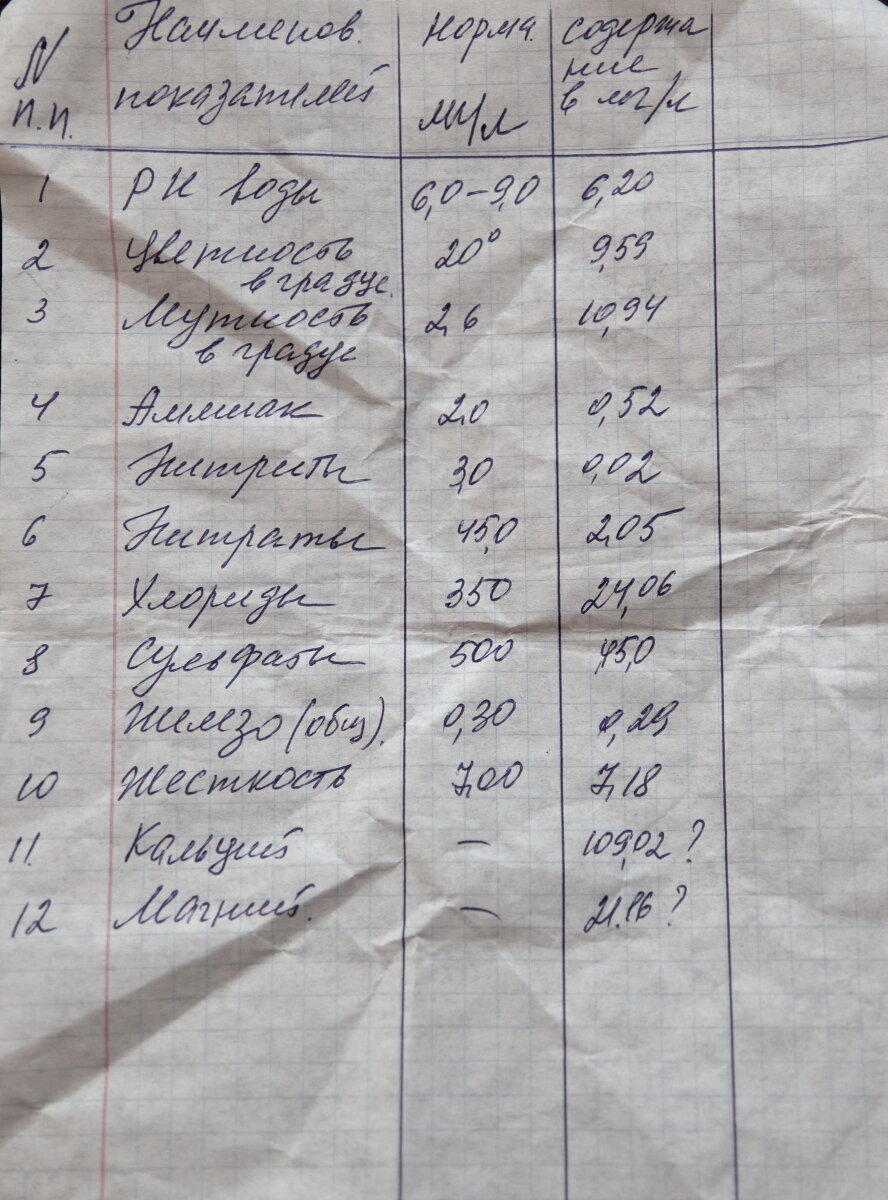 N п.п. Наименов. показателей норма мг/л содержание в мг/л
1 РН воды 6,0-9,0 6,20
2 Цветность 20° 9,59
в градус.
3 Мутность 2,6 10,94
в градус
4 Аммиак 2,0 0,52
5 Нитриты 3,0 0,02
6 Нитраты 45,0 2,05
7 Хлориды 350 24,06
8 Сульфаты 500 45,0
9 Железо (общ). 0,30 0,29
10 Жесткость 7,00 7,18
11. Кальций - 109,02 ?
12 Магний. - 21.86 ?